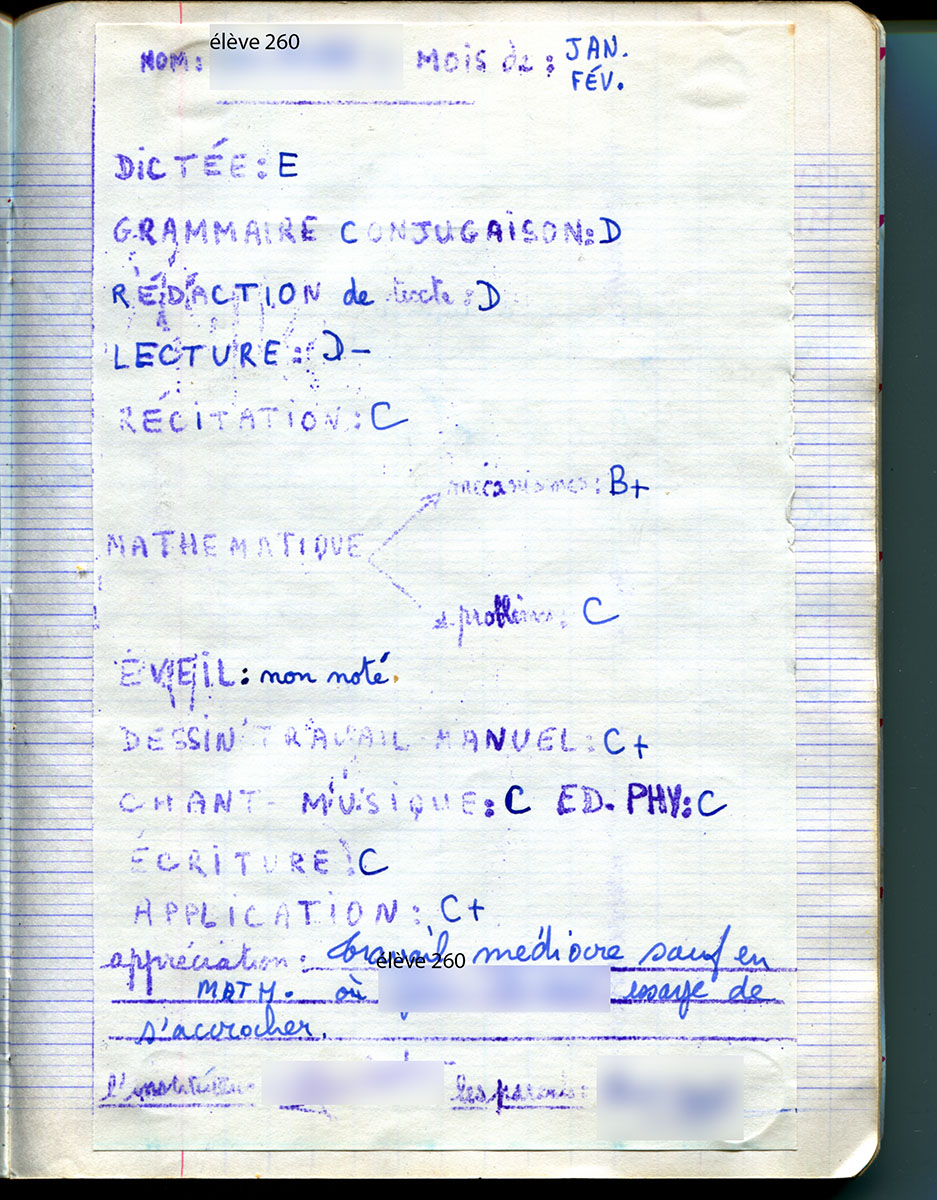 élève 260
NOM: MOIS de: JAN.
FÉV.
DICTÉE: E
GRAMMAIRE CONJUGAISON: D
RÉDACTION de texte: D
LECTURE: D-
RÉCITATION: C
mécanismes: B+
MATHEMATIQUE
problèmes: C
ÉVEIL: non noté.
DESSIN TRAVAIL MANUEL: C+
CHANT - MUSIQUE: C ED. PHY: C
ÉCRITURE: C
APPLICATION: C+
appréciation: travail médiocre sauf en
élève 260
MATH. où essaye de
s'accrocher.
l'instituteur: les parents: